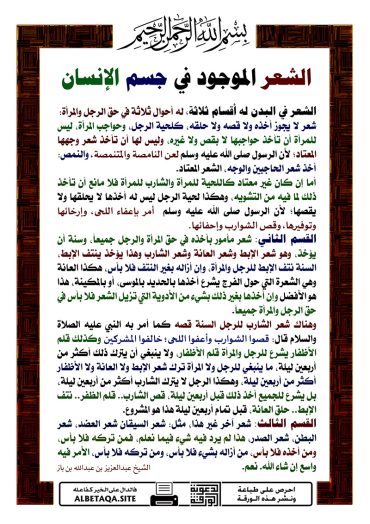 بسم الله الرحمن الرحيم
الشعر الموجود في جسم الإنسان
الشعر في البدن له أقسام ثلاثة، له أحوال ثلاثة في حق الرجل والمرأة:
شعر لا يجوز أخذه ولا قصه ولا حلقه، كلحية الرجل، وحواجب المرأة، ليس
للمرأة أن تأخذ حواجبها لا بقص ولا غيره، وليس لها أن تأخذ شعر وجهها
المعتاد؛ لأن الرسول صلى الله عليه وسلم لعن النامصة والمتنمصة، والنمص:
أخذ شعر الحاجبين والوجه، الشعر المعتاد.
أما إن كان غير معتاد كاللحية للمرأة والشارب للمرأة فلا مانع أن تأخذ
ذلك لما فيه من التشويه، وهكذا لحية الرجل ليس له أخذها لا يحلقها ولا
يقصها؛ لأن الرسول صلى الله عليه وسلم أمر بإعفاء اللحى، وإرخائها
وتوفيرها، وقص الشوارب وإحفائها.
القسم الثاني: شعر مأمور بأخذه في حق المرأة والرجل جميعاً، وسنة أن
يؤخذ، وهو شعر الإبط وشعر العانة وشعر الشارب وهذا يؤخذ ينتف الإبط،
السنة نتف الإبط للرجل والمرأة، وإن أزاله بغير النتف فلا بأس، هكذا العانة
وهي الشعرة التي حول الفرج يشرع أخذها بالحديد بالموسى، أو بالمكينة، هذا
هو الأفضل وإن أخذها بغير ذلك بشيء من الأدوية التي تزيل الشعر فلا بأس في
حق الرجل والمرأة جميعاً.
وهناك شعر الشارب للرجل السنة قصه كما أمر به النبي عليه الصلاة
والسلام قال: قصوا الشوارب وأعفوا اللحى؛ خالفوا المشركين وكذلك قلم
الأظفار يشرع للرجل والمرأة قلم الأظفار، ولا ينبغي أن يترك ذلك أكثر من
أربعين ليلة، ما ينبغي للرجل ولا المرأة ترك شعر الإبط ولا العانة ولا الأظفار
أكثر من أربعين ليلة، وهكذا الرجل لا يترك الشارب أكثر من أربعين ليلة،
بل يشرع للجميع أخذ ذلك قبل أربعين ليلة، قص الشارب.. قلم الظفر.. نتف
الإبط.. حلق العانة، قبل تمام أربعين ليلة هذا هو المشروع.
القسم الثالث: شعر آخر غير هذا، مثل: شعر السيقان شعر العضد، شعر
البطن، شعر الصدر، هذا لم يرد فيه شيء فيما نعلم، فمن تركه فلا بأس،
ومن أخذه فلا بأس، من أزاله بشيء فلا بأس، ومن تركه فلا بأس، الأمر فيه
واسع إن شاء الله. نعم.
الشيخ عبدالعزيز بن عبدالله بن باز
احرص على طباعة
ونشر هذه الورقة
فالدال على الخير كفاعله
ALBETAQA.SITE